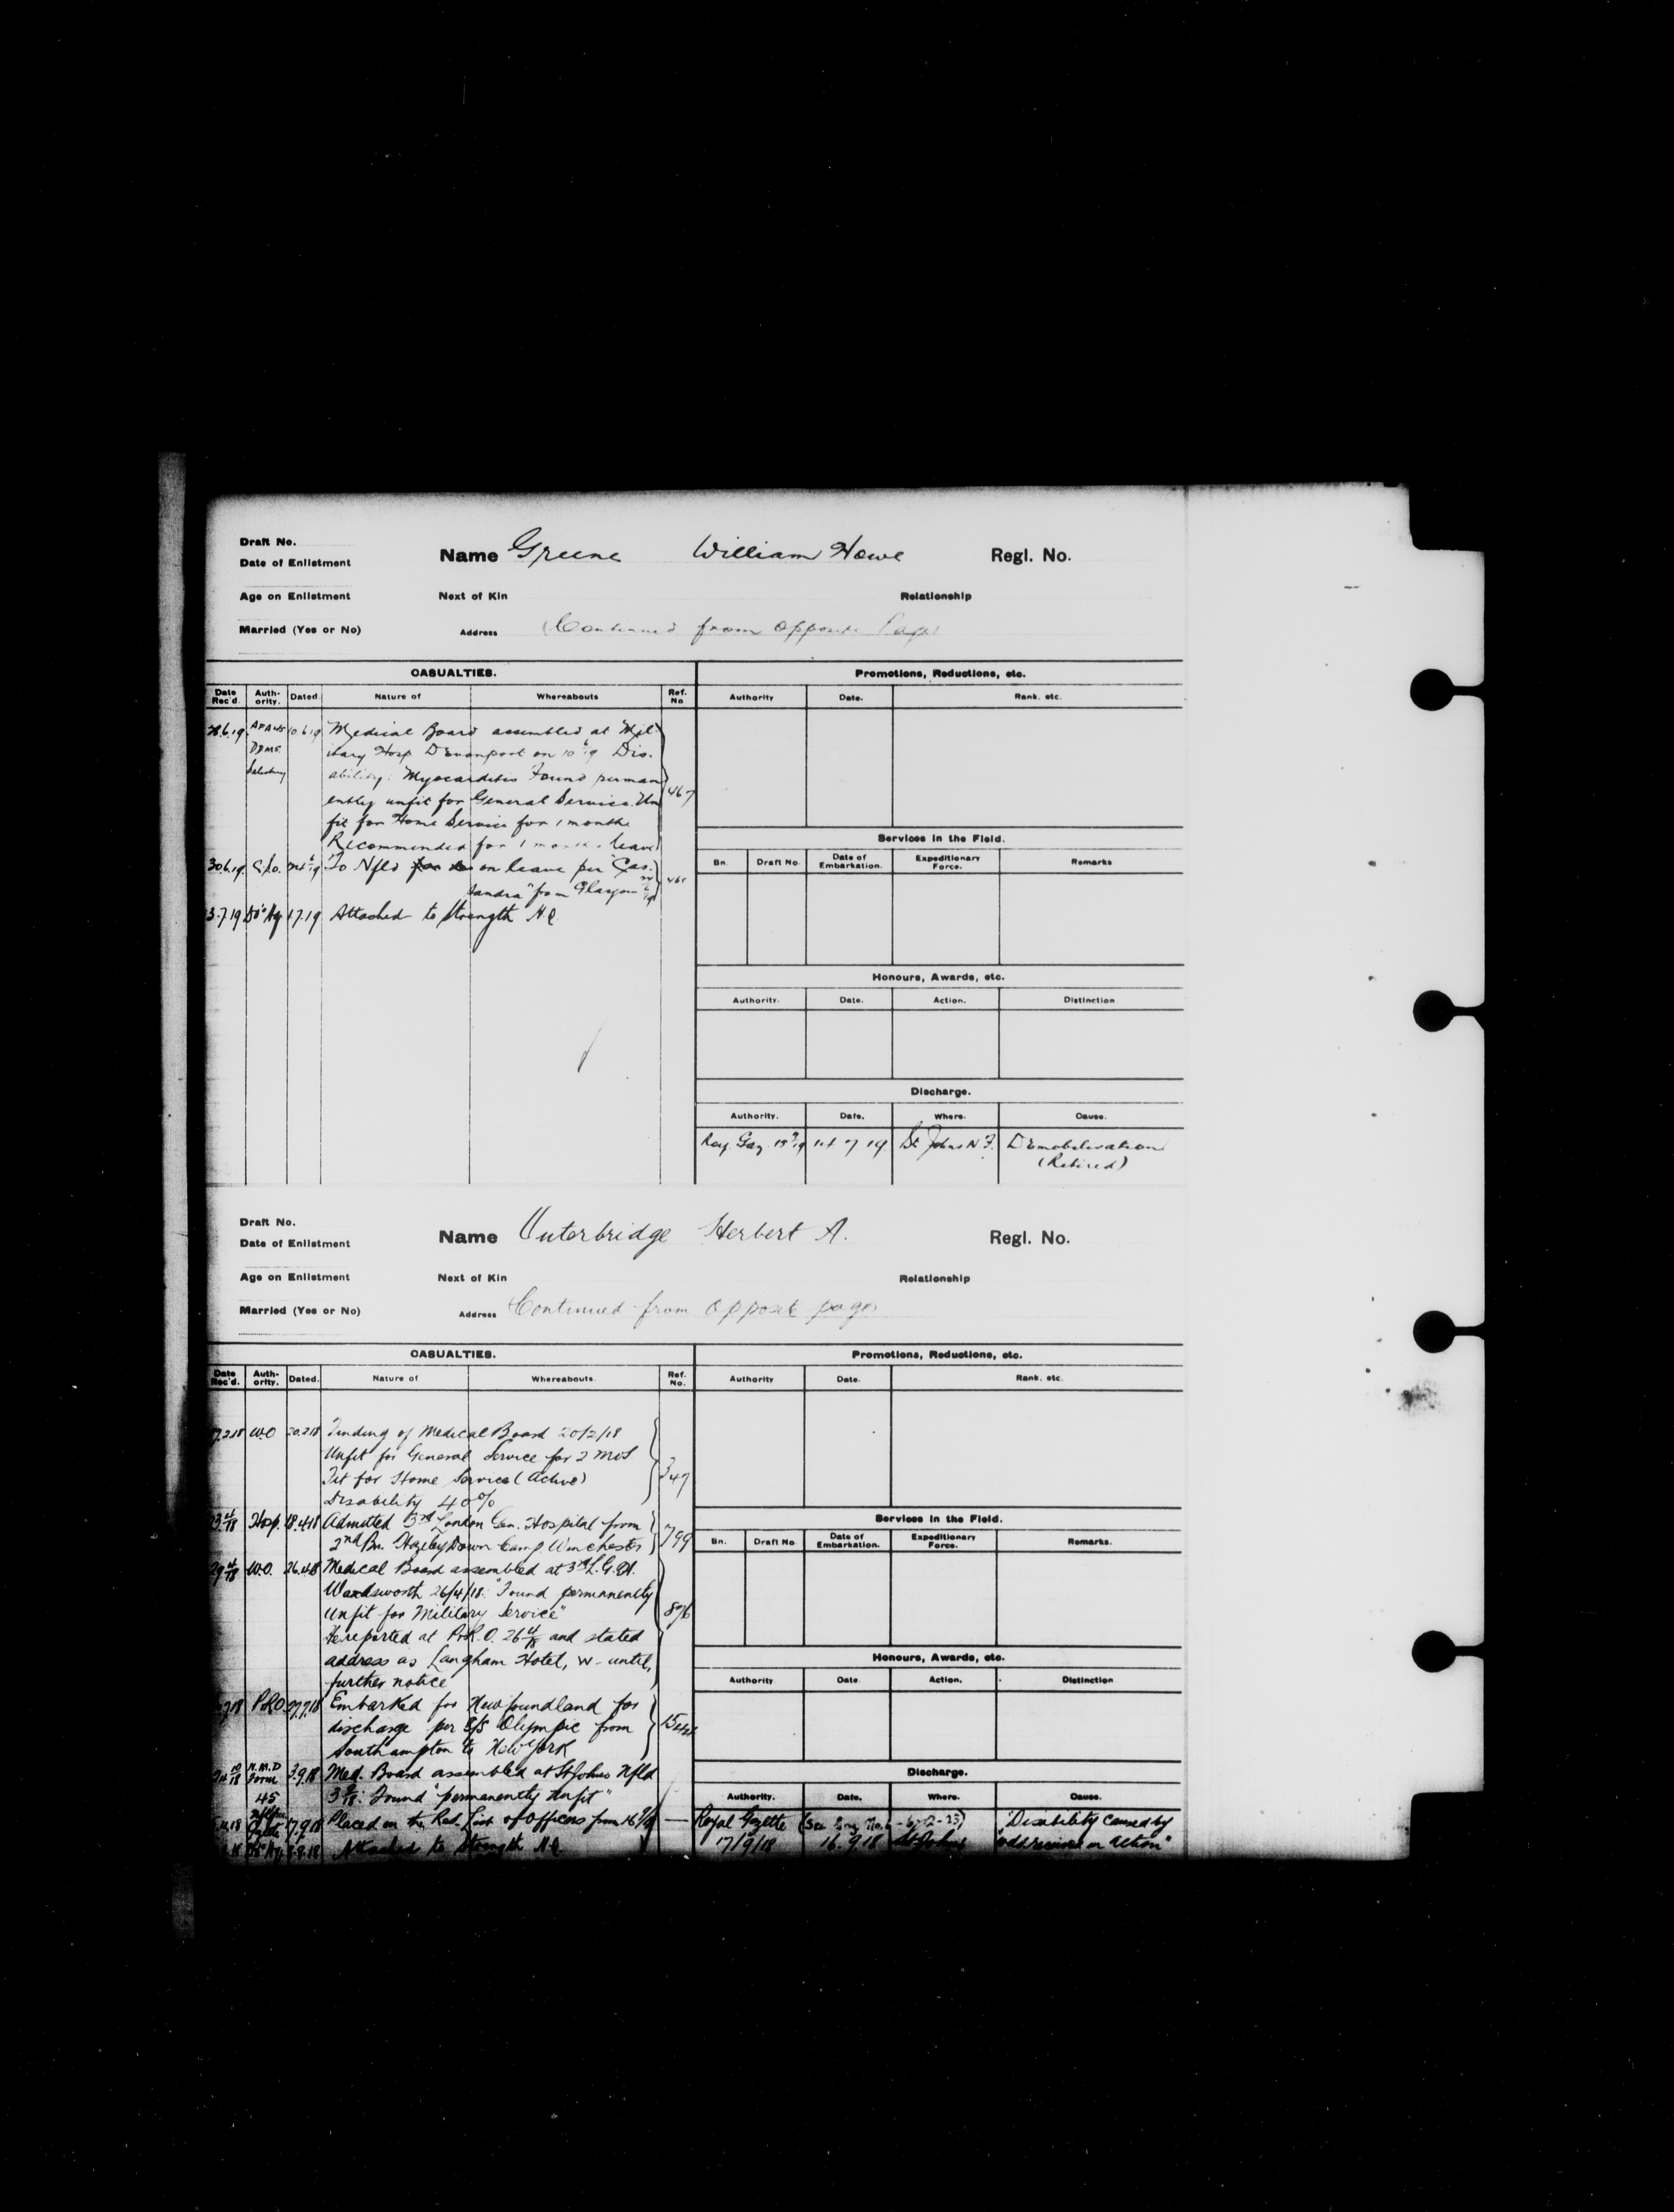 Draft No.
Name Greene William Howe Regl. No.
Date of Enlistment
Age on Enlistment Next of Kin Relationship
Married (Yes or No) Address (Continued from opposite Page)
CASUALTIES. Promotions, Reductions, etc.
Date Rec'd. Auth-ority. Dated. Nature of Whereabouts Ref. No Authority Date. Rank. etc.
28.6.19 DDMS Salisbury 10.6.19 Medical Board assembled at "Mil-
itary Hosp Devonport on 10 6/19 Dis-
ability: Myocarditis Found perman
ently unfit for General Service. Un
fit for Home Service for 1 month
Recommended for 1 months leave
467
30.6.19 To Nfld on leave per "Cas-
sandra" from Glasgow
3.7.19 1.7.19 Attached to Strength H.Q.
Services in the Field.
Bn. Draft No. Date of Embarkation. Expeditionary Force. Remarks
Honours, Awards, etc.
Authority. Date. Action. Distinction
Discharge.
Authority. Date. Where. Cause.
Roy. Gaz. 15 7/19 14 7 19 St. Johns N F. Demobilisation
(Retired)
Draft No.
Name Outerbridge Herbert A. Regl. No.
Date of Enlistment
Age on Enlistment Next of Kin Relationship
Married (Yes or No) Address Continued from opposite page
CASUALTIES. Promotions, Reductions, etc.
Date Rec'd. Auth-ority. Dated. Nature of Whereabouts Ref. No. Authority Date. Rank. etc.
W.O 20.2.18 Finding of Medical Board 20/2/18
Unfit for General Service for 2 mos
Fit for Home Service (Active)
Disability 40%
347
Hosp. 18.4.18 Admitted 3rd London Gen. Hospital from
2nd Bn. Hazeley Down Camp Winchester
799
29 4/18 W.O. 26.4.18 Medical Board assembled at 3rd L.G.H.
Wandsworth 26/4/18: "Found permanently
Unfit for Military Service"
He reported at P.&R.O. 26 4/18 and stated
address as Langham Hotel, W- until
further notice
896
P.&R.O. 27.7.18 Embarked for Newfoundland for
discharge per S/S Olympic from
Southampton to New York
N.M.D Form 45 3.9.18 Med. Board assembled at St Johns Nfld
3 9/18: Found "permanently Unfit"
17.9.18 Placed on the Ret. List of Officers from 16 9/18
Attached to Strength H.Q.
Services in the Field.
Bn. Draft No. Date of Embarkation. Expeditionary Force. Remarks.
Honours, Awards, etc.
Authority Date. Action. Distinction
Discharge.
Authority. Date. Where. Cause.
Royal Gazette "Disability caused by
17/9/18 16.9.18 St Johns